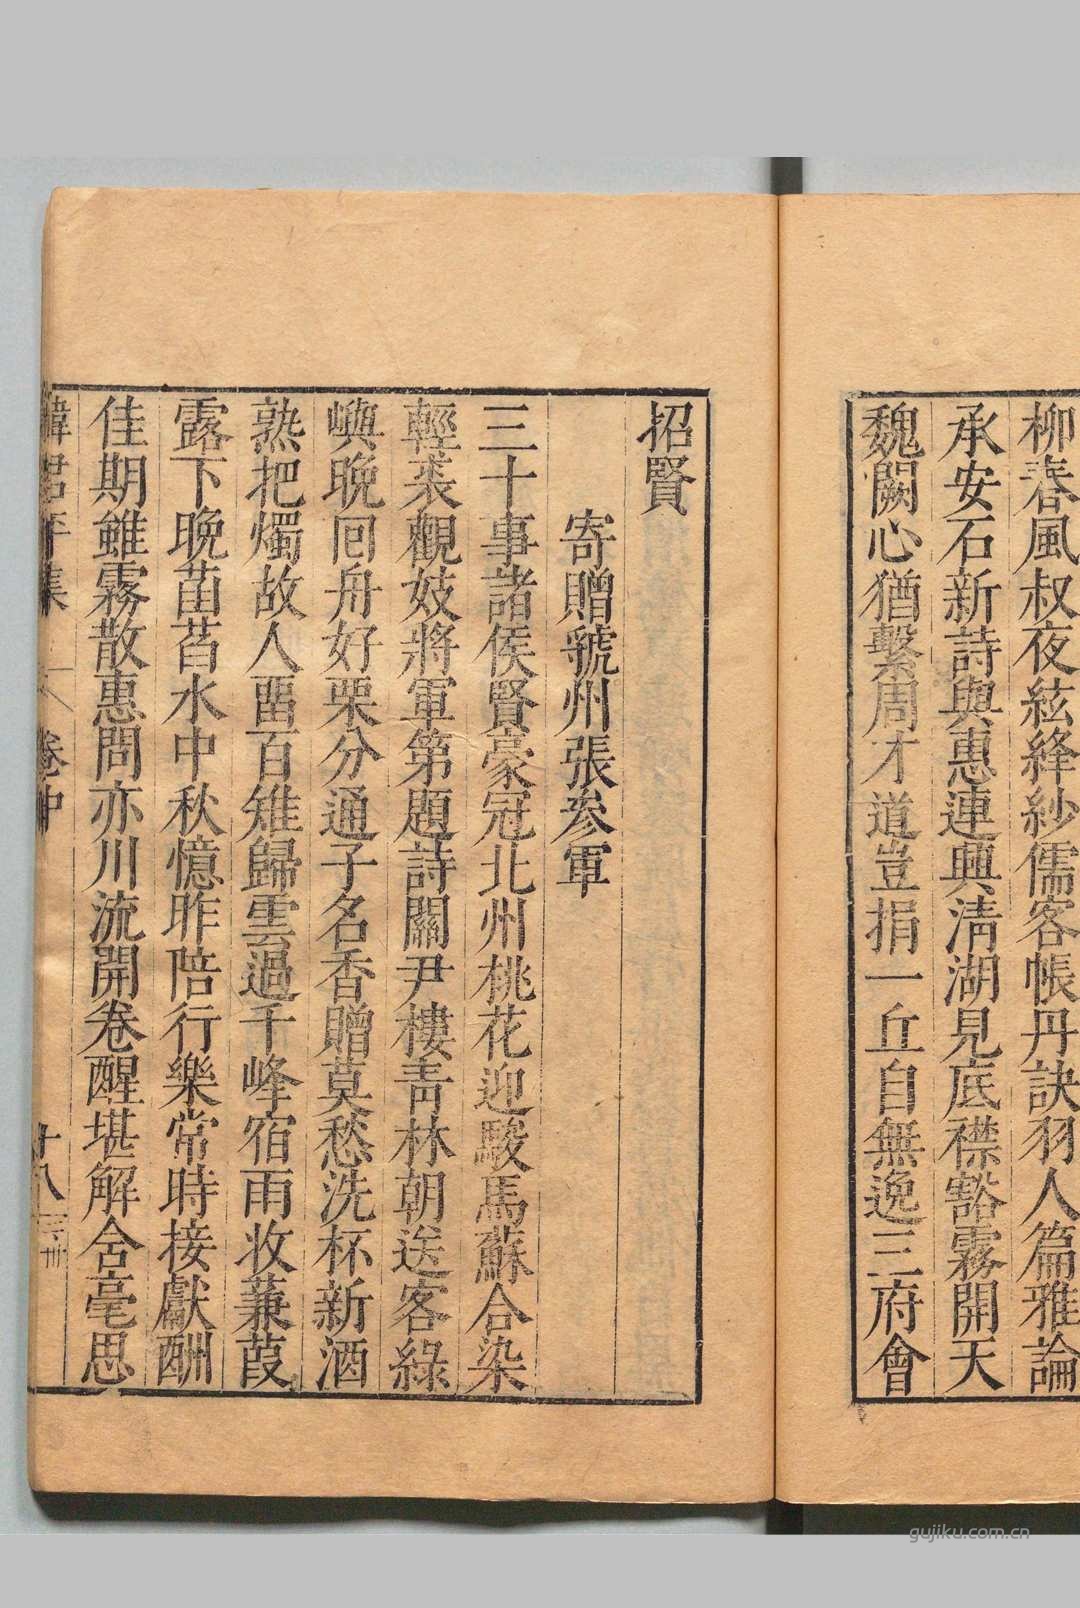 柳春風叔夜絃絳紗儒客帳丹訣羽人篇雅論
承安石新詩與惠連興清湖見底襟豁霧開天
魏闕心猶繫周才道豈捐一丘自無逸三府會
招賢
寄贈虢州張參軍
三十事諸侯賢豪冠北州桃花迎駿馬蘇合染
輕裘觀妓將軍第題詩關尹樓青林朝送客綠
嶼晚囘舟好栗分通子名香贈莫愁洗杯新酒
熟把燭故人畱百雉歸雲過千峰宿雨收蒹葭
露下晚菡萏水中秋憶昨陪行樂常時接獻酬
佳期雖霧散惠問亦川流開卷醒堪解含毫思
韓君平集 卷中 十八
gujiku.com.cn